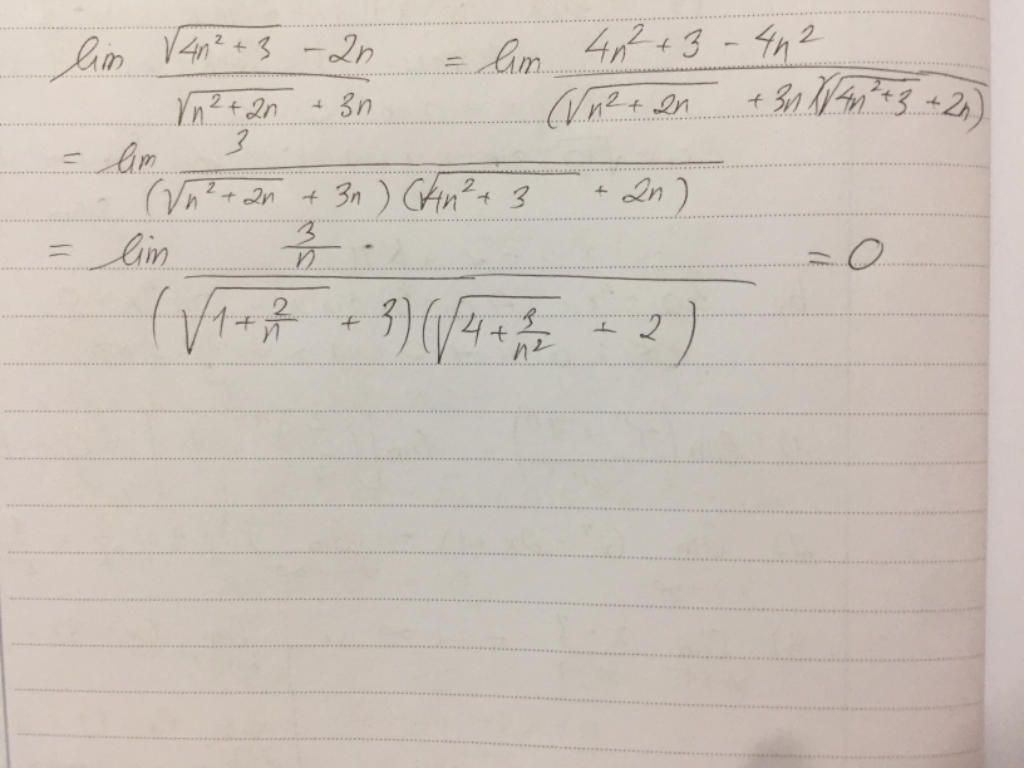 lim (√(4n² + 3) - 2n)/(√(n² + 2n) + 3n) = lim (4n² + 3 - 4n²)/((√(n² + 2n) + 3n)(√(4n² + 3) + 2n))
= lim 3/((√(n² + 2n) + 3n)(√(4n² + 3) + 2n))
= lim (3/n)/((√(1 + 2/n) + 3)(√(4 + 3/n²) + 2)) = 0